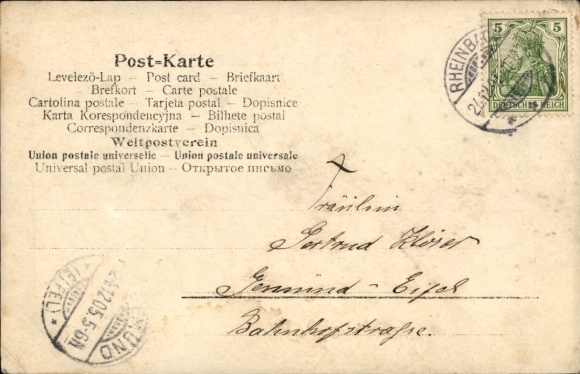 Post-Karte
Levelező-Lap — Post card — Briefkaart
Brefkort — Carte postale
Cartolina postale — Tarjeta postal — Dopisnice
Karta Korespondencyjna — Bilhete postal
Correspondenzkarte — Dopisnica
Weltpostverein
Union postale universelle — Union postale universale
Universal postal Union — Открытое письмо
5 5
DEUTSCHES REICH
RHEINBA
Fräulein
Gertrud Klöser
Gemünd - Eifel
Bahnhofstraße.
(EIFEL)
24.12.05.5-6N.
GEMÜND